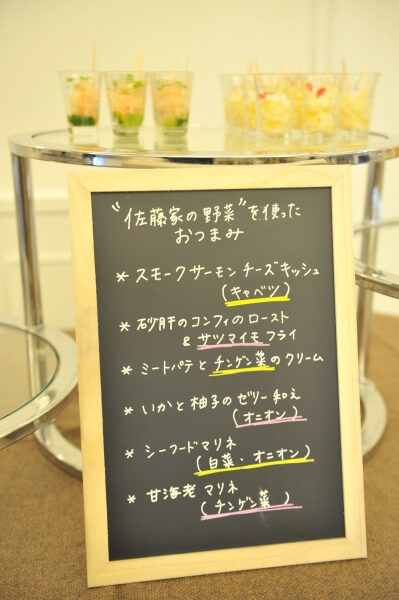 "佐藤家の野菜"を使った
おつまみ
* スモークサーモンチーズキッシュ
(キャベツ)
* 砂肝のコンフィのロースト
& サツマイモフライ
* ミートパテとチンゲン菜のクリーム
* いかと柚子のゼリー和え
(オニオン)
* シーフードマリネ
(白菜・オニオン)
* 甘海老マリネ
(チンゲン菜)